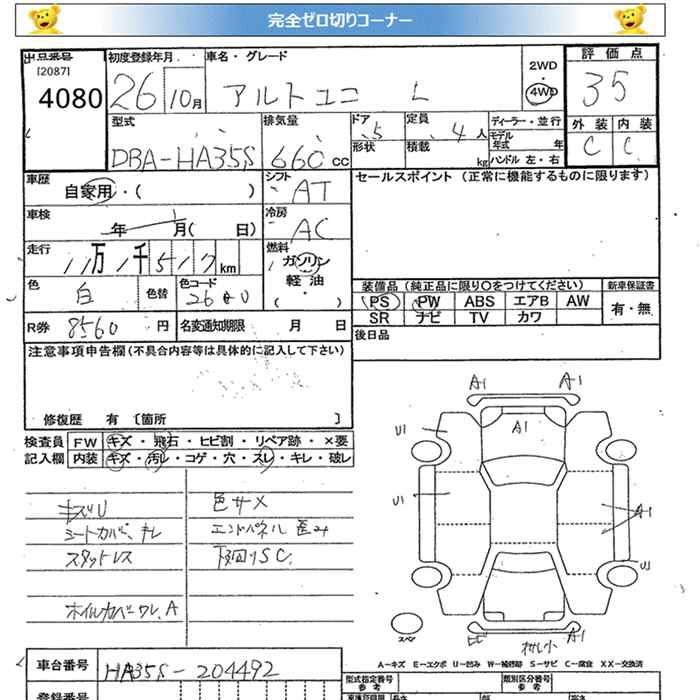 完全ゼロ切りコーナー
出品番号 初度登録年月 車名・グレード 2WD・4WD 評価点
[2087]
4080 26 10月 アルトエコ L 35
型式 排気量 ドア 5 定員 4人 ディーラー・並行 外装 内装
DBA-HA35S 660cc 形状 積載 kg モデル年式 年 C C
ハンドル 左・右
車歴 シフト セールスポイント (正常に機能するものに限ります)
自家用・( ) AT
車検 冷房
年 月( 日) AC
走行 燃料
11万1千517km ガソリン
色 色替 色コード 軽油 装備品 (純正品に限り○をつけてください) 新車保証書
白 ・( ) PS PW ABS エアB AW 有・無
R券 8560円 名変通知期限 月 日 SR ナビ TV カワ
注意事項申告欄(不具合内容等は具体的に記入して下さい) 後日品
修復歴 有 〔箇所 〕
検査員 FW キズ・飛石・ヒビ割・リペア跡・×要
記入欄 内装 キズ・汚レ・コゲ・穴・スレ・キレ・破レ
キズU 色サメ
シートカバーキレ エンドパネル歪み
スタッドレス 下回りSC
ホイルカバーワレ、A
A1 A1
A1
U1
U1 A1
U1
スペア A1
A-キズ E-エクボ U-凹み W-補修跡 S-サビ C-腐食 XX-交換済
車台番号 HA35S-204492 型式指定番号 参考 類別区分番号 参考
登録番号